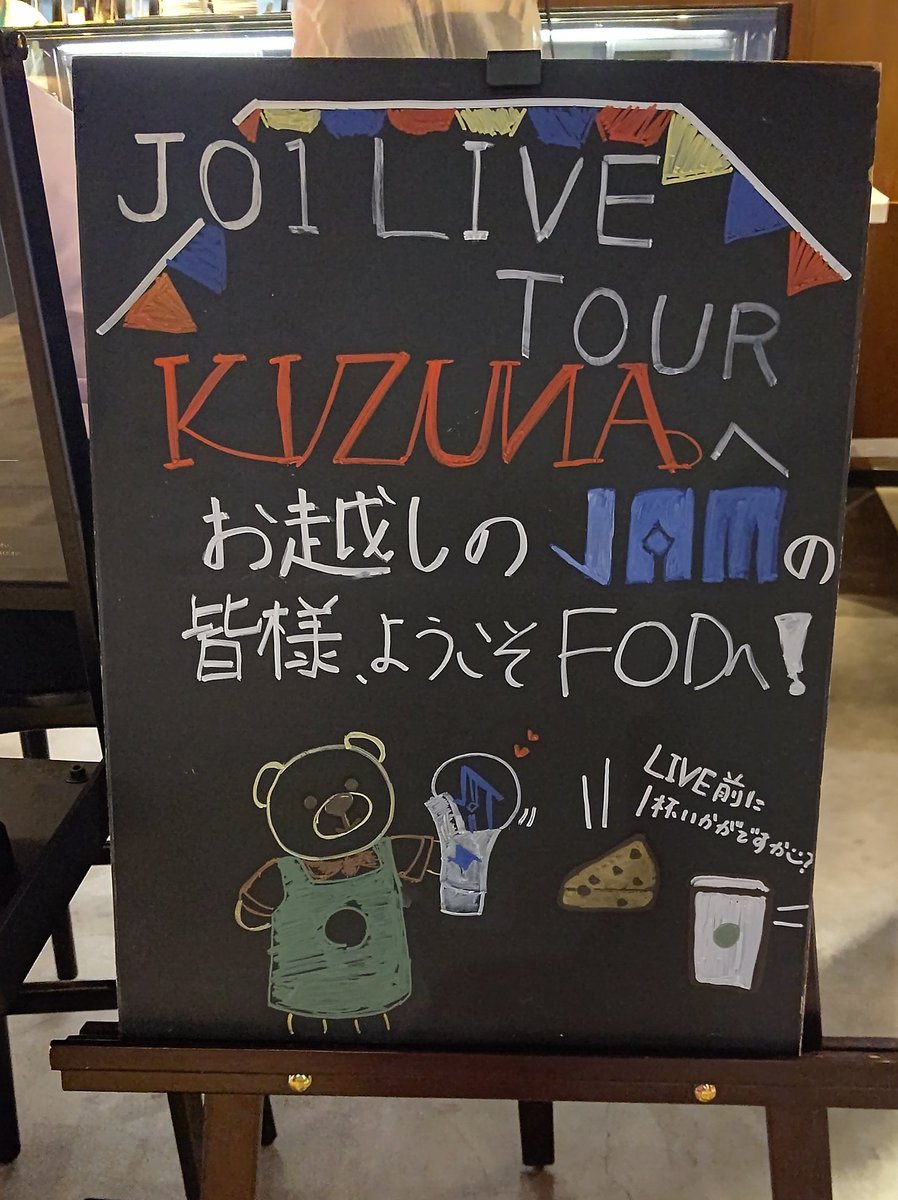 JO1 LIVE
TOUR
KIZUNAへ
お越しのJAMの
皆様、ようこそFODへ!
LIVE前に
1杯いかがですか?